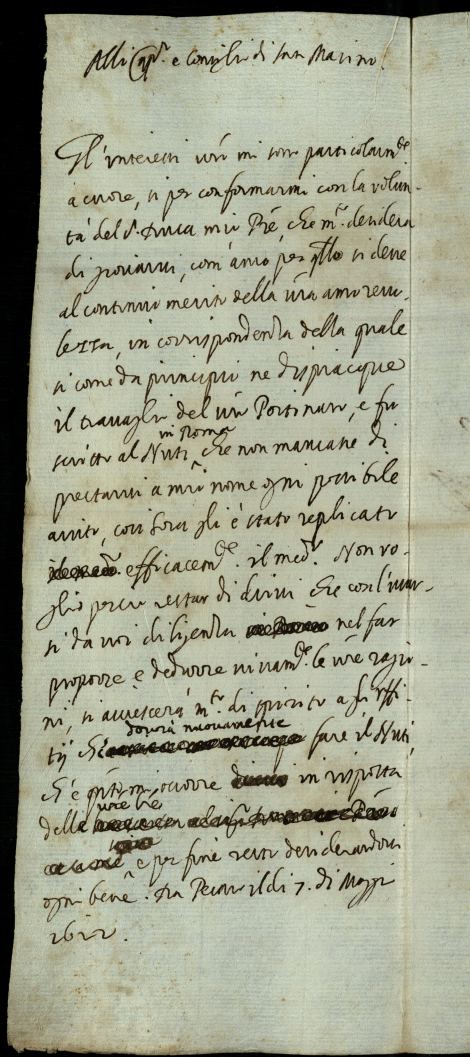 Alli Cap.ni e Consiglio di San Marino.
Gl'interessi vri mi sono particolarm.te
à cuore, si per conformarmi con la volun-
tà del S. Duca mio Pre, che m.to desidera
di giovarvi, com'anco per qllo si deve
al continuo merito della vra amorevo-
lezza, in corrispondenza della quale
si come da principio ne dispiacque
il travaglio del vro Portinaro, e fu
scritto al Nuti in Roma che non mancasse di
prestarvi a mio nome ogni possibile
aiuto, così hora gli è stato replicato
efficacem.te il med.o. Non vo-
glio perciò restar di dirvi che con l'usar-
si da voi diligenza nel far
proporre e dedurre vivam.te le vre ragio-
ni, si accrescerà m.to di spirito a gli offi-
tij che dovrà nuovamente fare il Nuti,
ch'è qnto mi occorre in risposta
della vre
e per fine resto desiderandovi
ogni bene. Da Pesaro il di 7. di Maggio
1622.